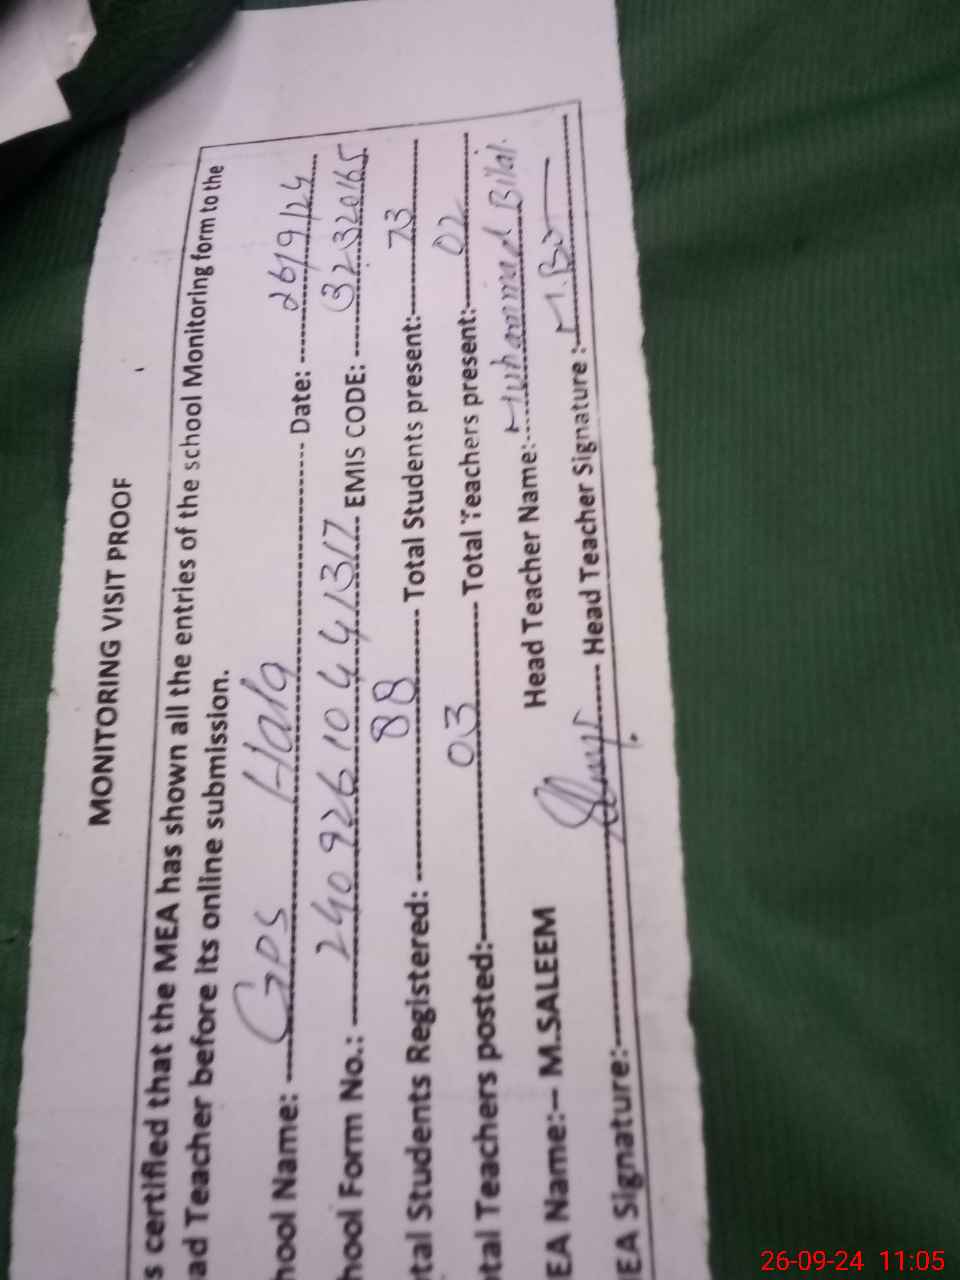 MONITORING VISIT PROOF
s certified that the MEA has shown all the entries of the school Monitoring form to the
ad Teacher before its online submission.
hool Name: GPS Hala Date: 26/9/24
hool Form No.: 24092610441317 EMIS CODE: 32320165
tal Students Registered: 88 Total Students present: 73
tal Teachers posted: 03 Total Teachers present: 02
EA Name:- M.SALEEM Head Teacher Name: Muhammad Bilal.
EA Signature: Head Teacher Signature :
26-09-24 11:05